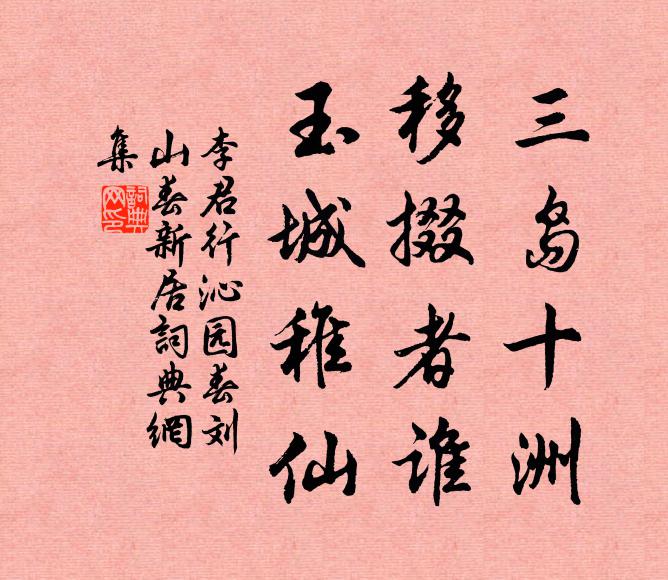 三岛十洲
移掇者谁
玉城稚仙
李君行沁园春刘
山春新居詞典網
集
詞典网印